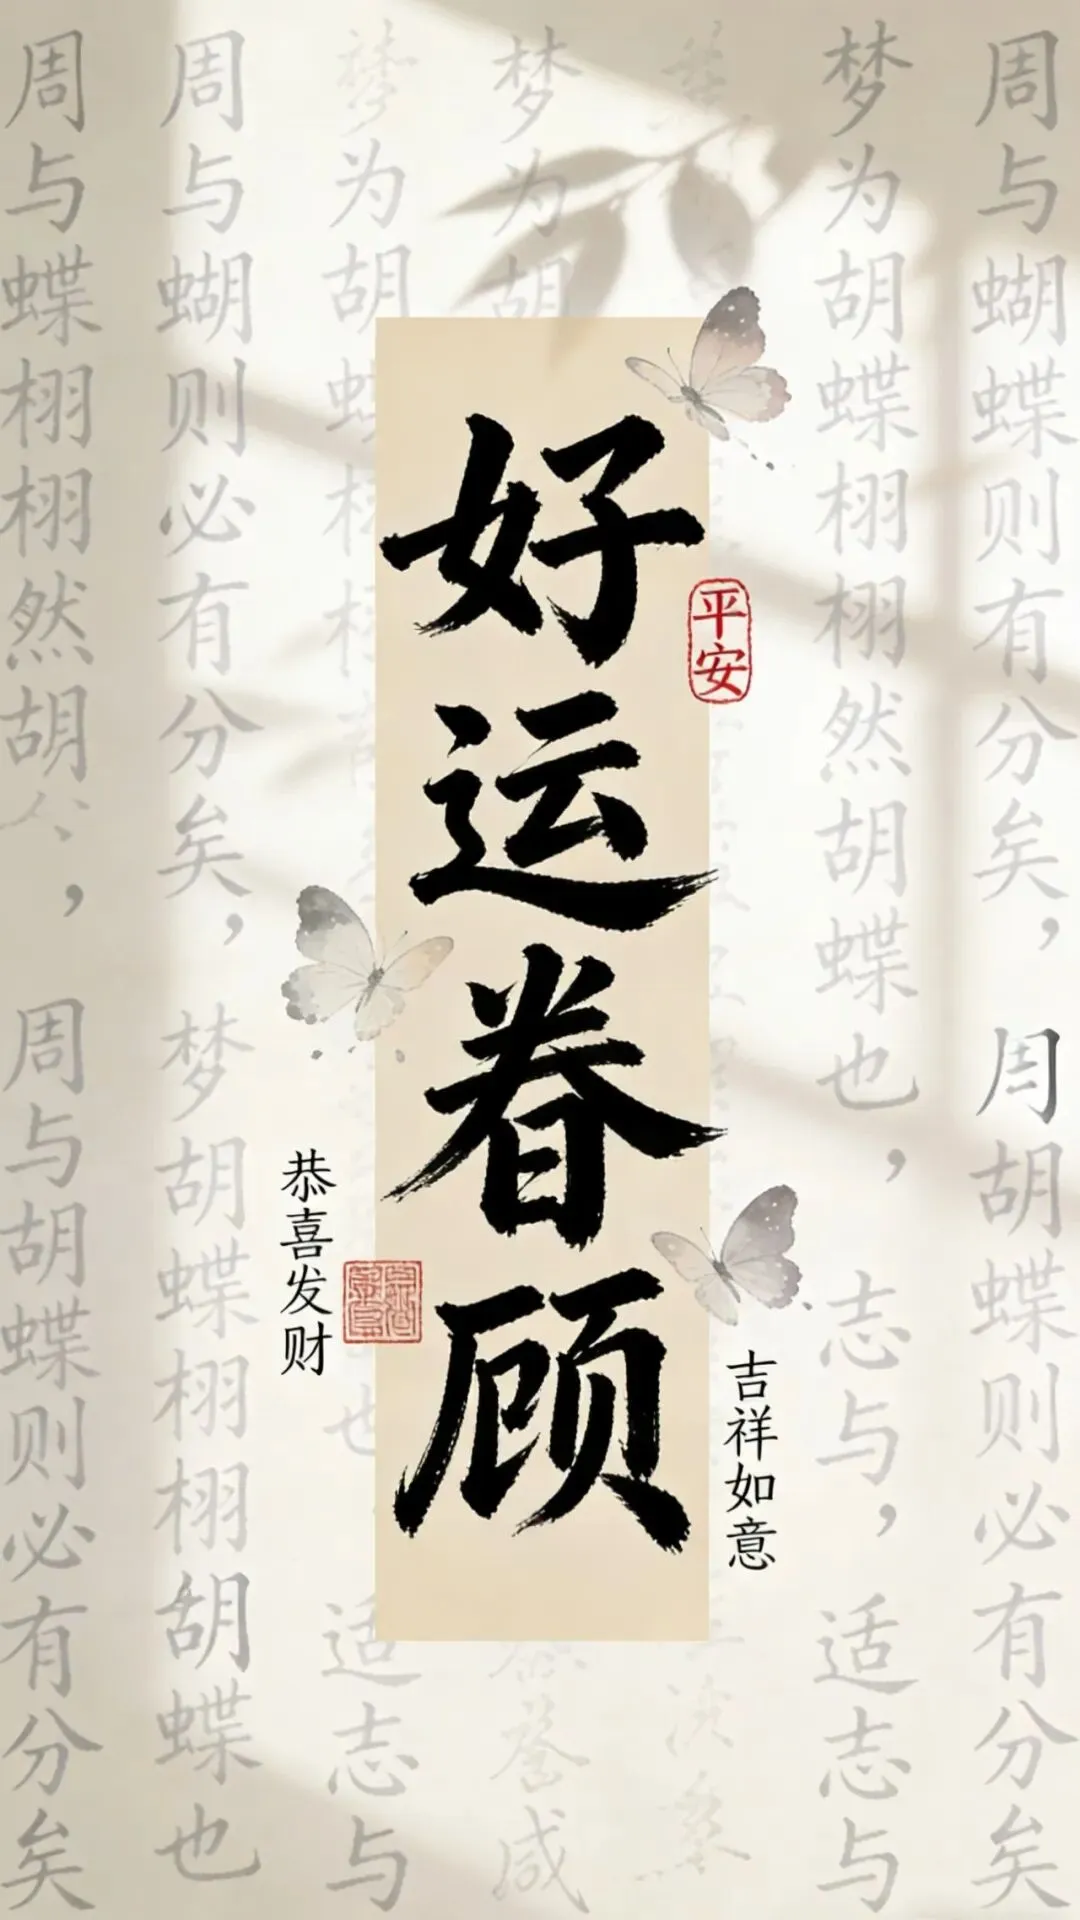 好运眷顾
平安
恭喜发财
吉祥如意
周与蝴蝶则必有分矣，
周胡蝶则必有分矣
梦为胡蝶栩栩然胡蝶也，
志与，适志与
梦为胡
为胡
适志与
周与蝴则必有分矣，梦胡蝶栩栩胡蝶也
周与蝶栩栩然胡
，周与胡蝶则必有分矣